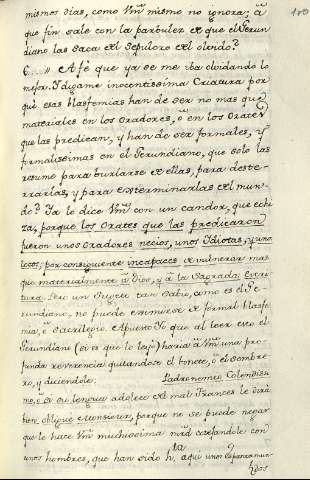 mismos dias, como Vm̃ mismo no ignora; á
que fin sale con la parbulez de que el Gerun
diano los saca del sepulcro del olvido?
6. Afé que ya se me iba olvidando lo
mejor. Digame inocentissima Criatura por
què esas blasfemias han de ser no mas que
materiales en los oradores, ò en los orates
que las predican, y han de ser formales, y
formalissimas en el Gerundiano, que solo las
resume para burlarse de ellas, para deste-
rrarlas, y para exterminarlas del mun-
do? Ya lo dice Vm̃ con un candor, que echi
za, porque los orates que las predicaron
fueron unos oradores necios, unos Idiotas, y unos
locos, por consiguiente incapaces de vulnerar mas
que materialmente à Dios, y à la Sagrada Escri
tura. Pero un sugeto tan sabio, como es el Ge-
rundiano, no puede eximirse de formal blasfe
mia, ò sacrilegio. Apuesto Yo que al leer esto el
Gerundiano (si es que lo leyo) haria à Vm̃ una pro-
funda reverencia quitandose el bonete, ò el sombre
ro, y diciendole:
mo, ò su lengua adolece del mal Frances le dirà
tien obligé e Monsieur, porque no se puede negar
que le hace Vm̃ muchissima mrd̃ cotejandole con
unos hombres, que han sido hta aqui unos